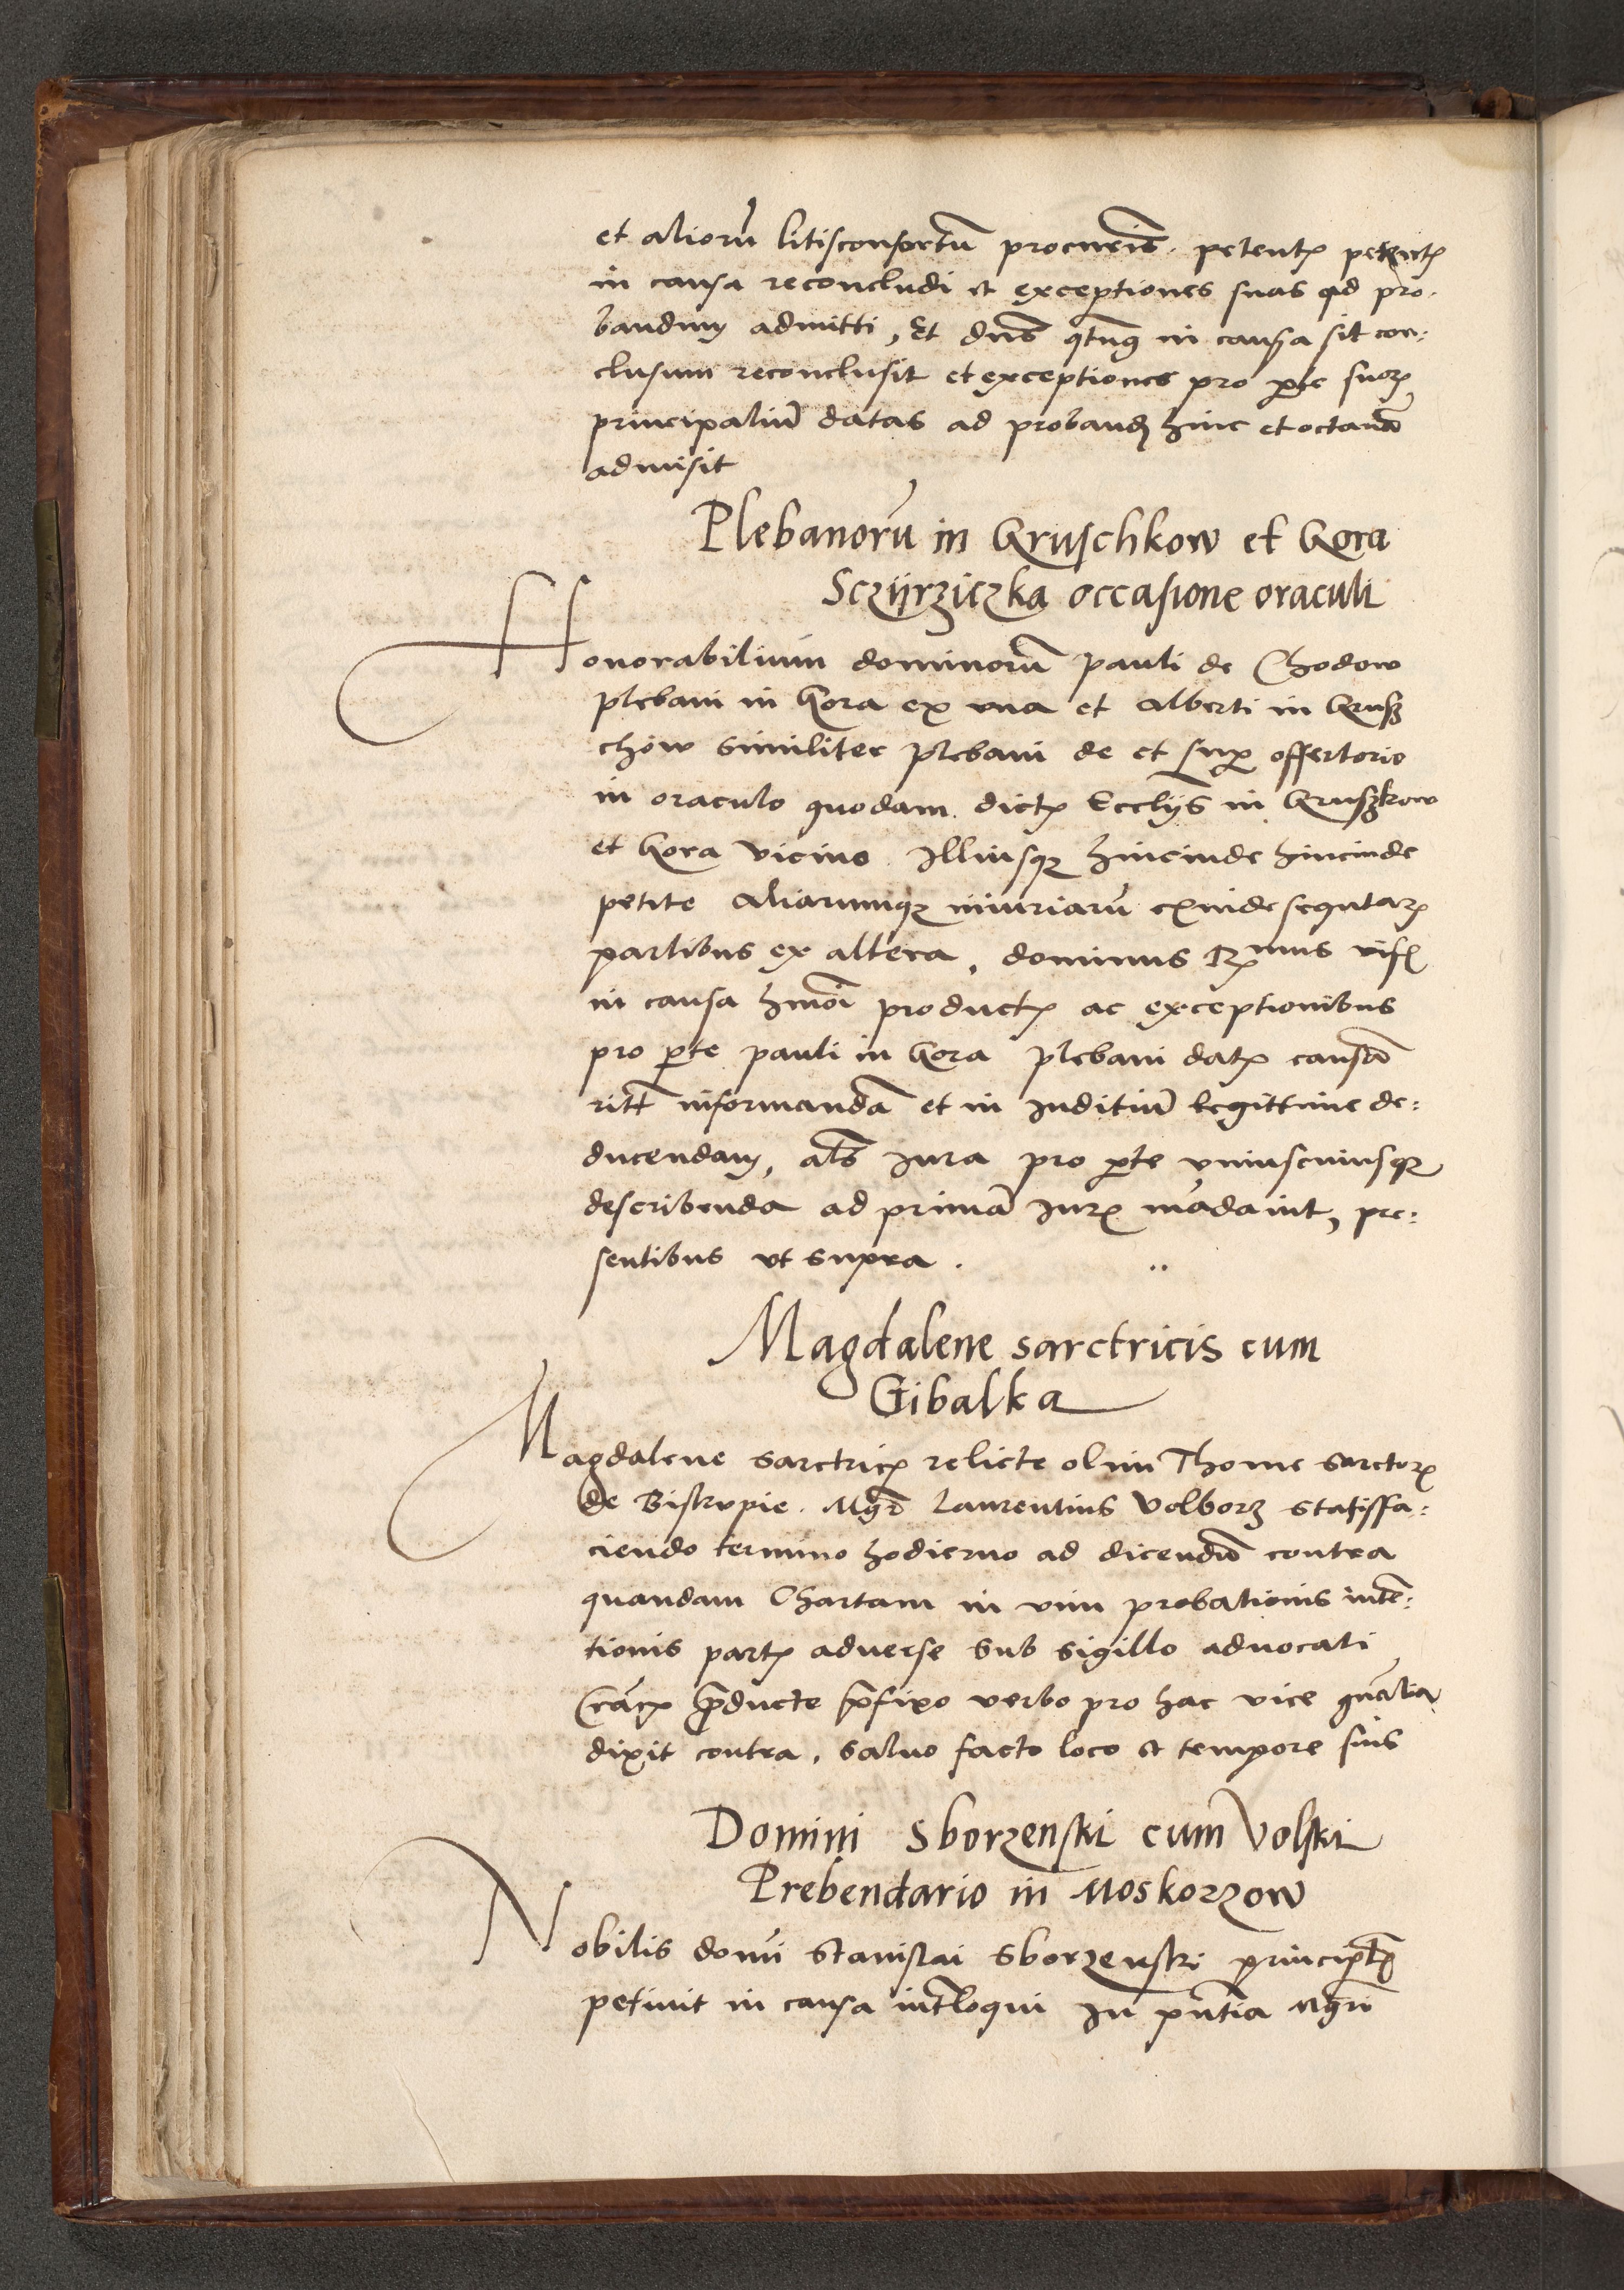 et aliorū litisconsortū procuris petentꝭ petentꝭ
in causa reconcludi et exceptiones suas ad pro-
bandum admitti, Et dns qtnꝰ in causa sit con:
clusum reconclusit et exceptiones pro ꝑte suoꝝ
principaliū datas ad probandꝭ hinc et octauā
admisit
Plebanorū in Gruschkow et Gora
Sczijrziczka occasione oraculi
Honorabilium dominorū Pauli de Chodow
plebani in Gora ex vna et Alberti in Grusz
chow similiter plebani de et suꝑ offertorio
in oraculo quodam dictꝭ Ecclijs in Gruszkow
et Gora vicino Illiusqꝫ hincinde hincinde
petite Aliarumqꝫ iniuriarū exinde sequtaꝝ
partibus ex altera, dominus Rꝭmus visꝭ
in causa hmoi productꝭ ac exceptionibus
pro ꝑte pauli in Gora plebani datꝭ causā
ritt informandā et in Iuditiū legittime de:
ducendam, als Iura pro ꝑte vniuscuiusqꝫ
describenda ad primā Iurꝭ mādauit, pre:
sentibus vt supra.
Magdalene sarctricis cum
Gibalka
Magdalene sarctricꝭ relicte olim Thome sarctorꝭ
de Biskupie. Mgr Laurentius Volborz statissfa:
ciendo termino hodierno ad dicendū contra
quandam Chartam in vim probationis intē:
tionis partꝭ aduerse sub sigillo aduocati
Cracꝭ ꝓducte p̄fixo verbo pro hac vice gnalia
dixit contra, saluo facto loco et tempore suis
Domini Sborzenski cum Volski
Prebendario in Moskorzow
Nobilis domi Stanislai Sborzenski principlꝭ
petiuit in causa intloqui In pntia Mgri